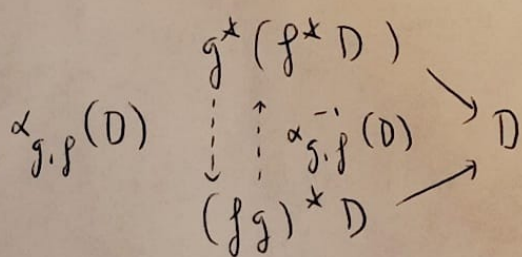 g*(f*D)
α_{g,f}(D) α^{-1}_{g,f}(D) D
(fg)*D